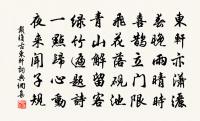 東軒亦瀟灑
喜晴時
燕立門限
飛花落硯池
青山解留客
綠題詩
一點歸心動
夜來聞子規
戴復古東軒詞典網集